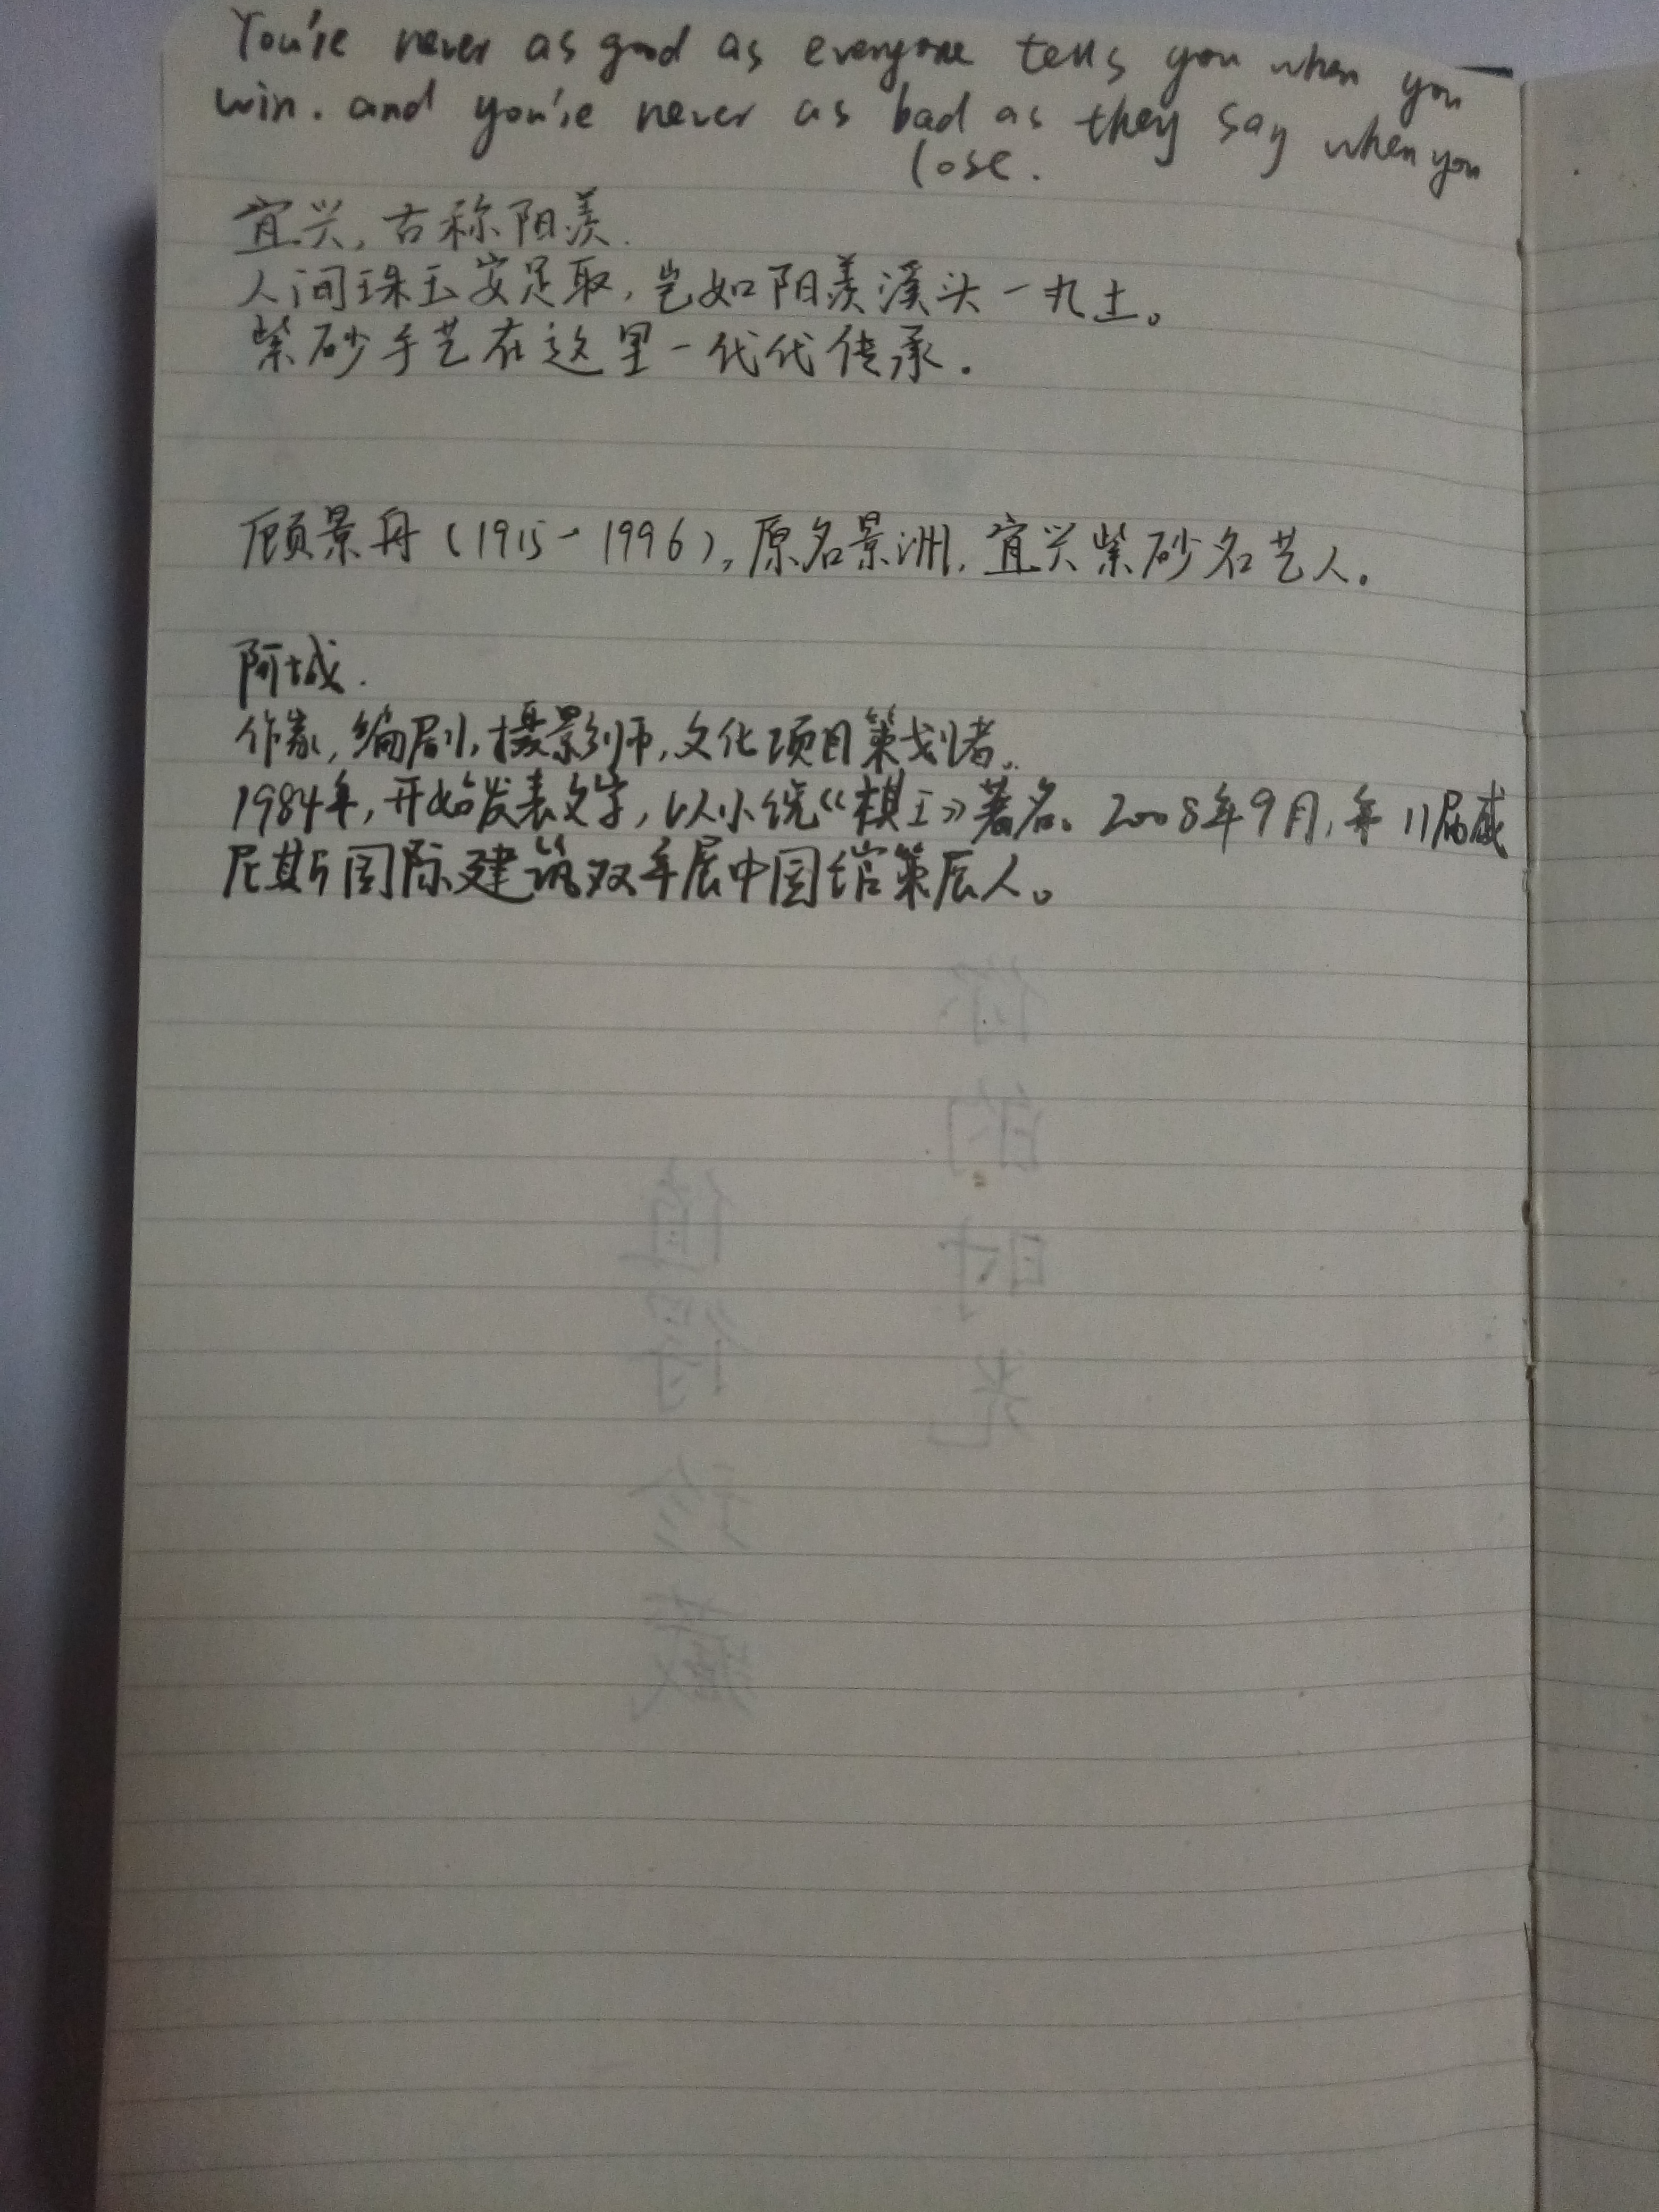 You're never as good as everyone tells you when you
win. and you're never as bad as they say when you
lose.
宜兴,古称阳羡.
人间珠玉安足取,岂如阳羡溪头一丸土。
紫砂手艺在这里一代代传承.
顾景舟(1915-1996),原名景洲,宜兴紫砂名艺人.
阿城.
作家,编剧,摄影师,文化项目策划者.
1984年,开始发表文字,以小说《棋王》著名。2008年9月,第11届威
尼斯国际建筑双年展中国馆策展人。
你的时光
值得珍藏